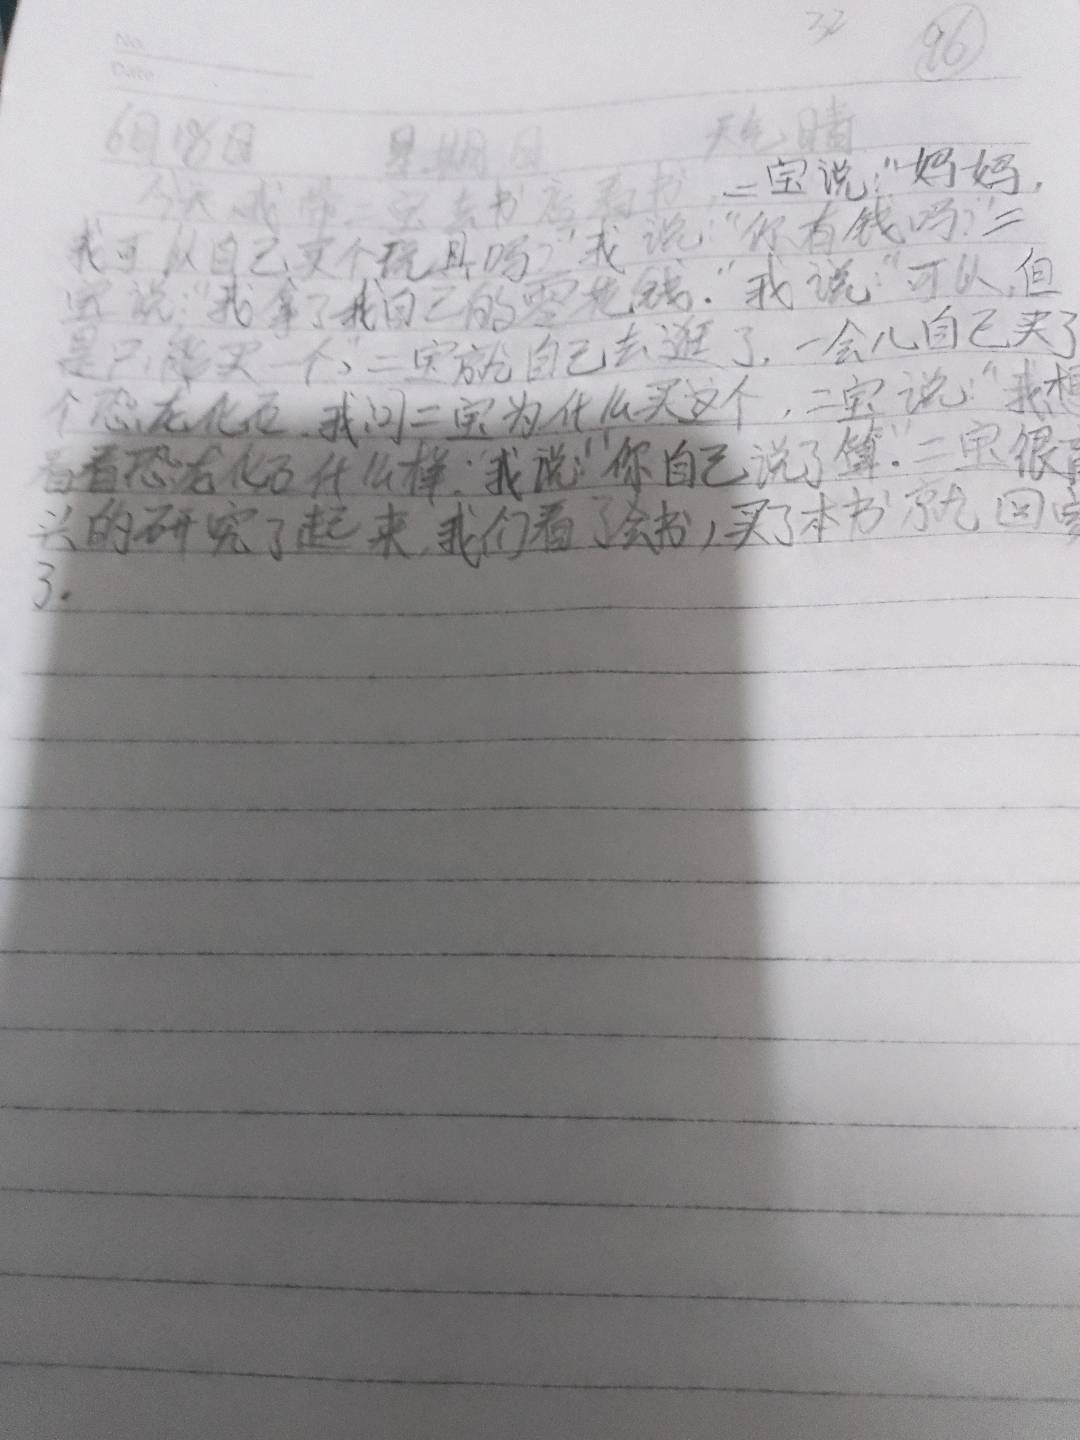 32
96
No.
Date
6月 日 星期日 天气晴
今天,我带二宝去书店看书,二宝说:"妈妈,
我可以自己买个玩具吗?"我说:"你有钱吗?"二
宝说:"我拿了我自己的零花钱."我说:"可以,但
是只能买一个,"二宝就自己去逛了,一会儿自己买了
个恐龙化石,我问二宝为什么买这个,二宝说:"我想
看看恐龙化石什么样."我说:"你自己说了算."二宝很高
兴的研究了起来,我们看了会书,买了本书就回家
了.